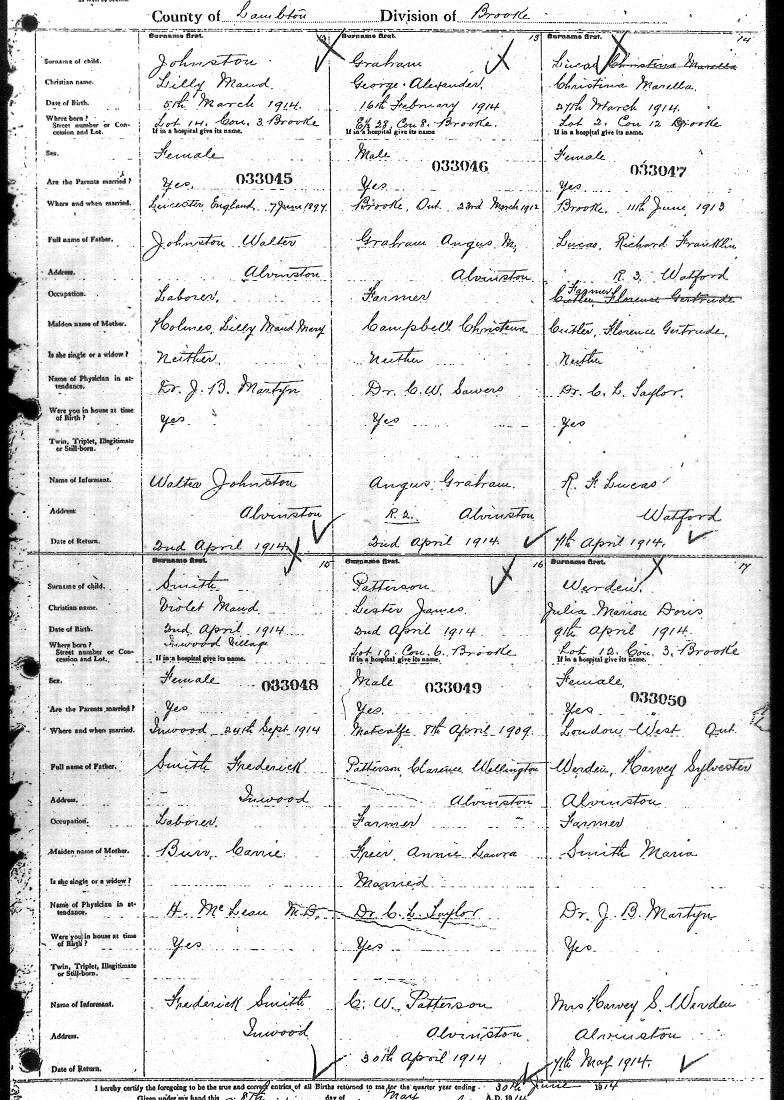 County of Lambton Division of Brooke
Surname first. Surname first. 13 Surname first. 14
Surname of child. Johnston Graham Lucas Christina Marella
Christian name. Lilly Maud George Alexander. Christina Marella
Date of Birth. 5th March 1914. 16th February 1914 27th March 1914.
Where born? Street number or Concession and Lot. Lot 14. Con. 3. Brooke Con 8. Brooke. Lot 2. Con 12 Brooke
If in a hospital give its name If in a hospital give its name If in a hospital give its name
Sex. Female Male Female
033045 033046 033047
Are the Parents married? Yes. Yes Yes
Where and when married. Leicester England. 7 June 1897 Brooke, Ont. 23rd March 1912 Brooke. 11th June 1913
Full name of Father. Johnston Walter Graham Angus M. Lucas. Richard Franklin
Address. Alvinston Alvinston R. 3. Watford
Occupation. Laborer. Farmer Farmer Cutler, Florence Gertrude
Maiden name of Mother. Holmes, Lilly Maud Mary Campbell Christena Cutler, Florence Gertrude.
Is she single or a widow? Neither. Neither Neither
Name of Physician in attendance. Dr. J. B. Martyn Dr. C. W. Sawers Dr. C. L. Taylor.
Were you in house at time of Birth? Yes. Yes Yes
Twin, Triplet, Illegitimate or Still-born.
Name of Informant. Walter Johnston Angus Graham. R. F. Lucas
Address. Alvinston R 2. Alvinston Watford
Date of Return. 2nd April 1914 2nd April 1914. 7th April 1914.
Surname first. 15 Surname first. 16 Surname first. 17
Surname of child. Smith Patterson Werden.
Christian name. Violet Maud Lester James Julia Marion Doris
Date of Birth. 2nd April 1914 2nd April 1914 9th April 1914.
Where born? Street number or Concession and Lot. Inwood Village Lot 10. Con. 6. Brooke Lot 12. Con. 3. Brooke
If in a hospital give its name If in a hospital give its name. If in a hospital give its name.
Sex. Female Male Female.
033048 033049 033050
Are the Parents married? Yes Yes. Yes
Where and when married. Inwood 24th Sept. 1914 Metcalfe 8th April 1909. London West Ont.
Full name of Father. Smith Frederick Patterson, Clarence Wellington Werden, Harvey Sylvester
Address. Inwood Alvinston Alvinston
Occupation. Laborer. Farmer Farmer
Maiden name of Mother. Burr, Carrie Annie Laura Smith Maria
Is she single or a widow? Married
Name of Physician in attendance. H. McLean M.D. Dr. C. L. Taylor Dr. J. B. Martyn
Were you in house at time of Birth? Yes Yes Yes.
Twin, Triplet, Illegitimate or Still-born.
Name of Informant. Frederick Smith C. W. Patterson Mrs Harvey S. Werden
Address. Inwood Alvinston Alvinston
Date of Return. 30th April 1914 7th May 1914.
I hereby certify the foregoing to be the true and correct entries of all Births returned to me for the quarter year ending 30th June 1914
Given under my hand this 8th day of May A.D. 1914